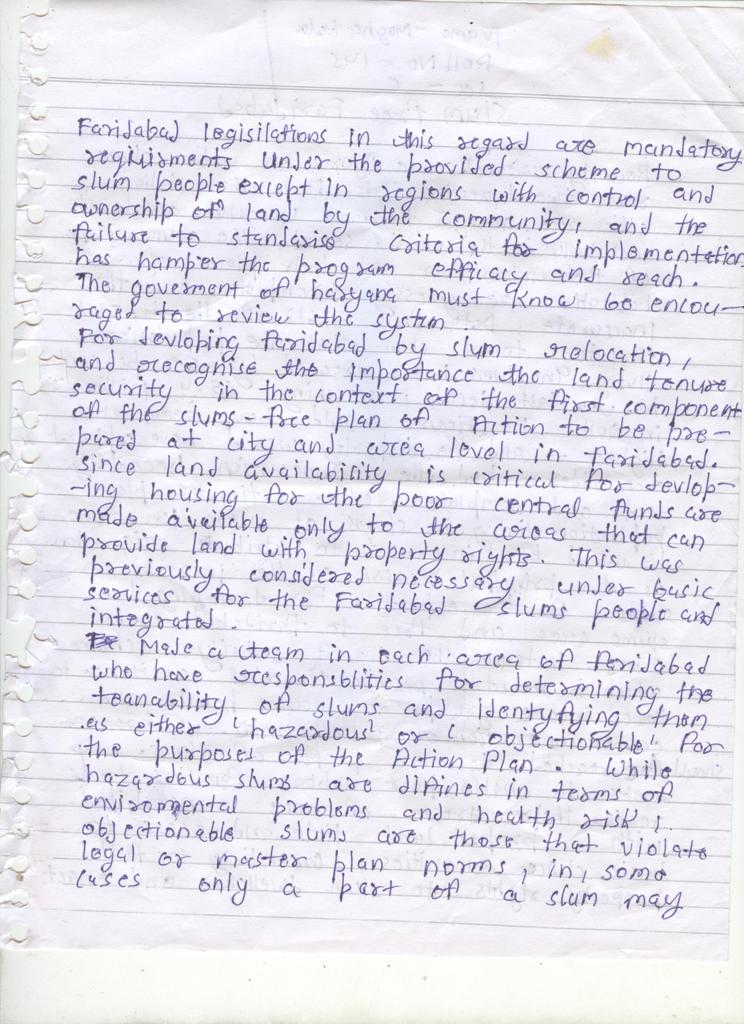 Faridabad legisilations in this regard are mandatory
reqiuisments under the provided scheme to
slum people except in regions with control and
ownership of land by the community, and the
failure to standarise criteria for implementation
has hampier the program efficacy and reach.
The goverment of haryana must know be encou-
raged to review the system
For devloping faridabad by slum relocation,
and recognise the importance the land tenure
security in the context of the first component
of the slums-free plan of Action to be pre-
pared at city and area level in faridabad.
since land availability is critical for devlop-
-ing housing for the poor central funds are
made available only to the areas that can
provide land with property rights. This was
previously considered necessary under basic
services for the Faridabad slums people and
integrated.
Made a team in each area of faridabad
who have responsblities for determining the
teanability of slums and identyfying them
as either 'hazardous' or 'objectionable' for
the purposes of the Action Plan. While
hazardous slums are difines in terms of
enviromental problems and health risk,
objectionable slums are those that violate
legal or master plan norms, in, some
cases only a part of a slum may